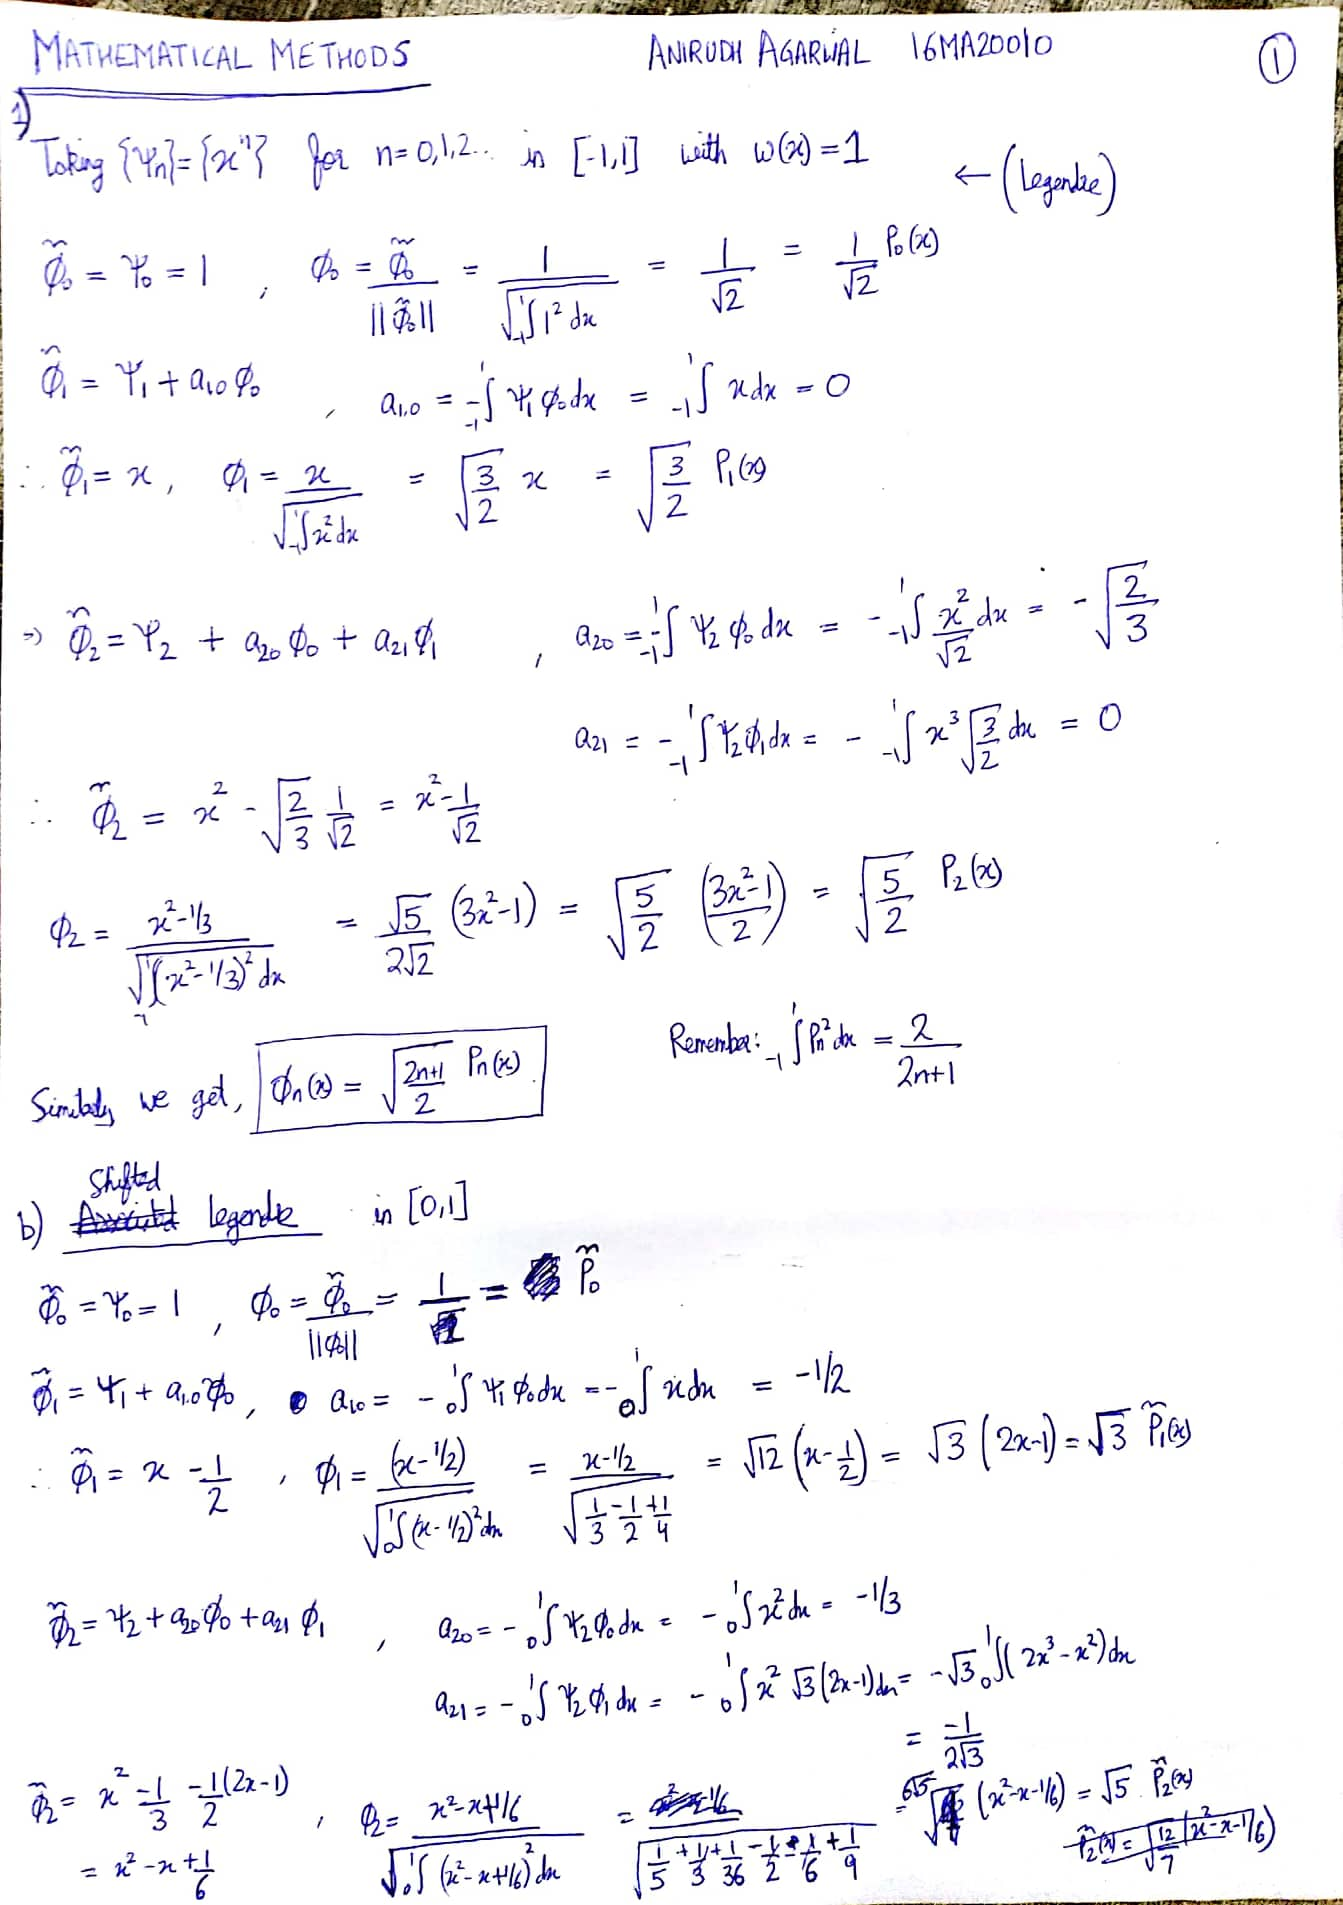 MATHEMATICAL METHODS ANIRUDH AGARWAL 16MA20010 ①
1)
Taking {Ψn}={xⁿ} for n=0,1,2.. in [-1,1] with w(x)=1 ← (Legendre)
φ̃₀ = Ψ₀ = 1 , φ₀ = φ̃₀/||φ̃₀|| = 1/√(₋₁∫¹ 1² dx) = 1/√2 = 1/√2 P₀(x)
φ̃₁ = Ψ₁ + a₁₀ φ₀ , a₁,₀ = -₋₁∫¹ Ψ₁ φ₀ dx = ₋₁∫¹ x dx = 0
∴ φ̃₁ = x , φ₁ = x/√(₋₁∫¹ x² dx) = √(3/2) x = √(3/2) P₁(x)
⇒ φ̃₂ = Ψ₂ + a₂₀ φ₀ + a₂₁ φ₁ , a₂₀ = -₋₁∫¹ Ψ₂ φ₀ dx = -₋₁∫¹ x²/√2 dx = -√2/3
a₂₁ = -₋₁∫¹ Ψ₂ φ₁ dx = -₋₁∫¹ x³ √(3/2) dx = 0
∴ φ̃₂ = x² - √2/3 1/√2 = x² - 1/√2
φ₂ = (x²-1/3)/√(₋₁∫¹ (x²-1/3)² dx) = √5/2√2 (3x²-1) = √(5/2) ((3x²-1)/2) = √(5/2) P₂(x)
Remember: ₋₁∫¹ Pn² dx = 2/(2n+1)
Similarly we get, φn(x) = √((2n+1)/2) Pn(x).
b) Shifted legendre in [0,1]
φ̃₀ = Ψ₀ = 1 , φ₀ = φ̃₀/||φ₀|| = 1/1 = P̃₀
φ̃₁ = Ψ₁ + a₁,₀ φ₀ , a₁₀ = -₀∫¹ Ψ₁ φ₀ dx = -₀∫¹ x dx = -1/2
∴ φ̃₁ = x - 1/2 , φ₁ = (x-1/2)/√(₀∫¹ (x-1/2)² dx) = (x-1/2)/√(1/3 - 1/2 + 1/4) = √12 (x-1/2) = √3 (2x-1) = √3 P̃₁(x)
φ̃₂ = Ψ₂ + a₂₀ φ₀ + a₂₁ φ₁ , a₂₀ = -₀∫¹ Ψ₂ φ₀ dx = -₀∫¹ x² dx = -1/3
a₂₁ = -₀∫¹ Ψ₂ φ₁ dx = -₀∫¹ x² √3 (2x-1) dx = -√3 ₀∫¹ (2x³-x²) dx
= -1/2√3
φ̃₂ = x² - 1/3 - 1/2 (2x-1) , φ₂ = (x²-x+1/6)/√(₀∫¹ (x²-x+1/6)² dx) = 1/√(1/5 + 1/3 + 1/36 - 1/2 + 1/6 + 1/9) = 6√5 (x²-x-1/6) = √5 P̃₂(x)
= x² - x + 1/6